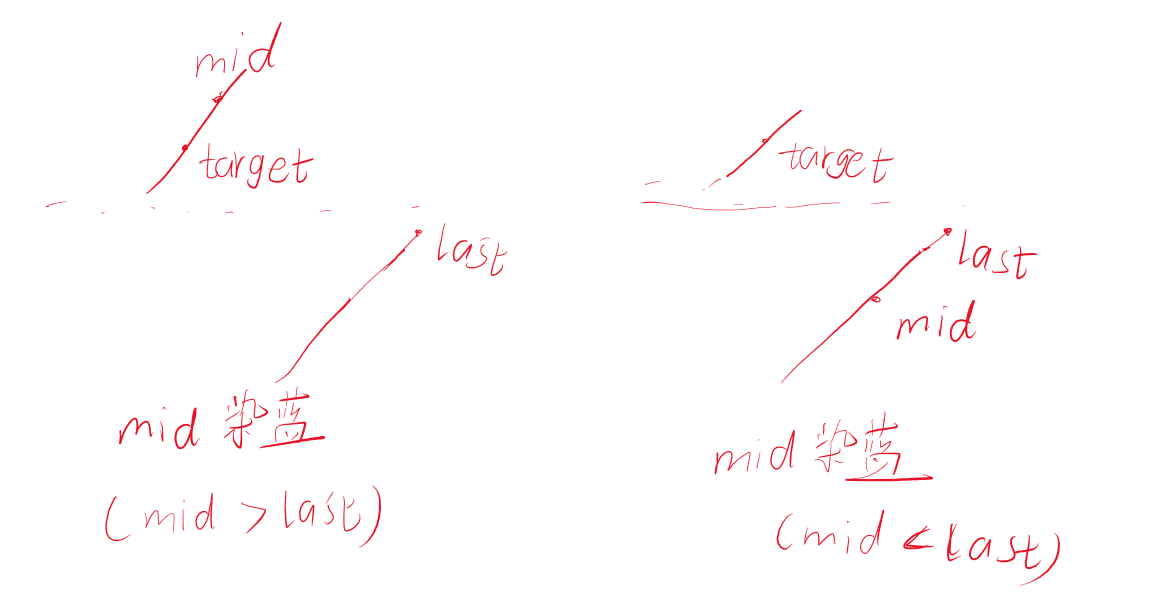 mid
target
last
mid 染蓝
(mid > last)
target
last
mid
mid 染蓝
(mid < last)